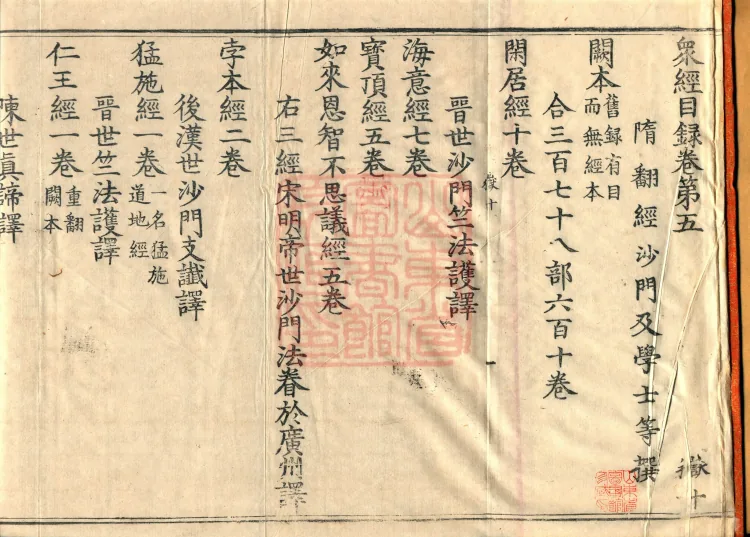 衆經目録卷第五 嶽十
隋翻經沙門及學士等撰
闕本 舊録有目
而無經本
合三百七十八部六百十卷
閑居經十卷
嶽十 一
晉世沙門竺法護譯
海意經七卷
寶頂經五卷
如來恩智不思議經五卷
右三經宋明帝世沙門法眷於廣州譯
孛本經二卷
後漢世沙門支讖譯
猛施經一卷 一名猛施
道地經
晉世竺法護譯 重翻
闕本
仁王經一卷
陳世真諦譯